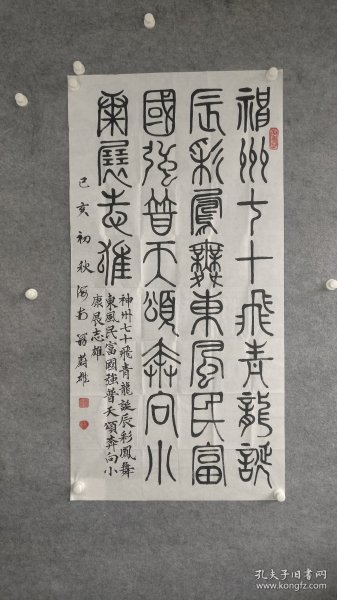 神州七十飛青龍誕
辰彩鳳舞東風民富
國強普天頌奔向小
康展志雄
神州七十飛青龍誕辰彩鳳舞
東風民富國強普天頌奔向小
康展志雄
己亥初秋
孔夫子旧书网
www.kongfz.com